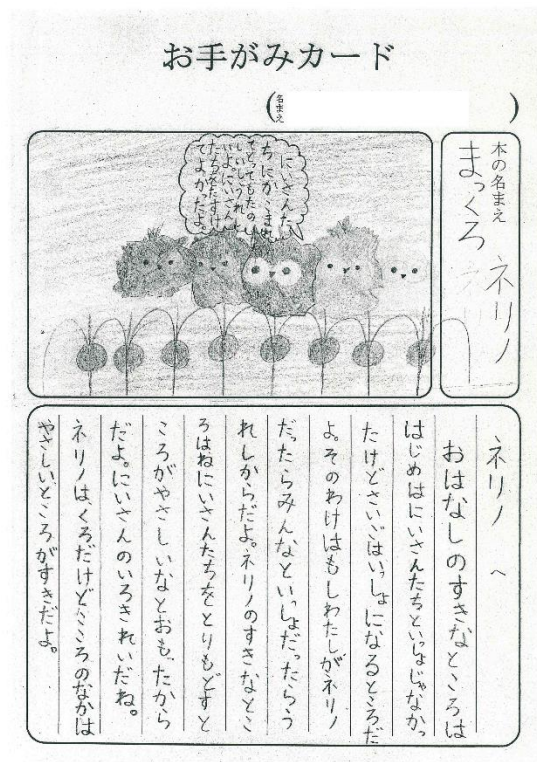 お手がみカード
(名まえ )
本の名まえ
まっくろ ネリノ
にいさんた
ちにかこまれ
てとてもたのし
いし、うれし
いよ。にいさん
たちをたすけ
てよかったよ。
ネリノ へ
おはなしのすきなところは
はじめはにいさんたちといっしょじゃなかっ
たけどさいごはいっしょになるところだ
よ。そのわけはもしわたしがネリノ
だったらみんなといっしょだったらう
れしからだよ。ネリノのすきなとこ
ろはねにいさんたちをとりもどすと
ころがやさしいなとおもったから
だよ。にいさんのいろきれいだね。
ネリノは、くろだけどこころのなかは
やさしいところがすきだよ。